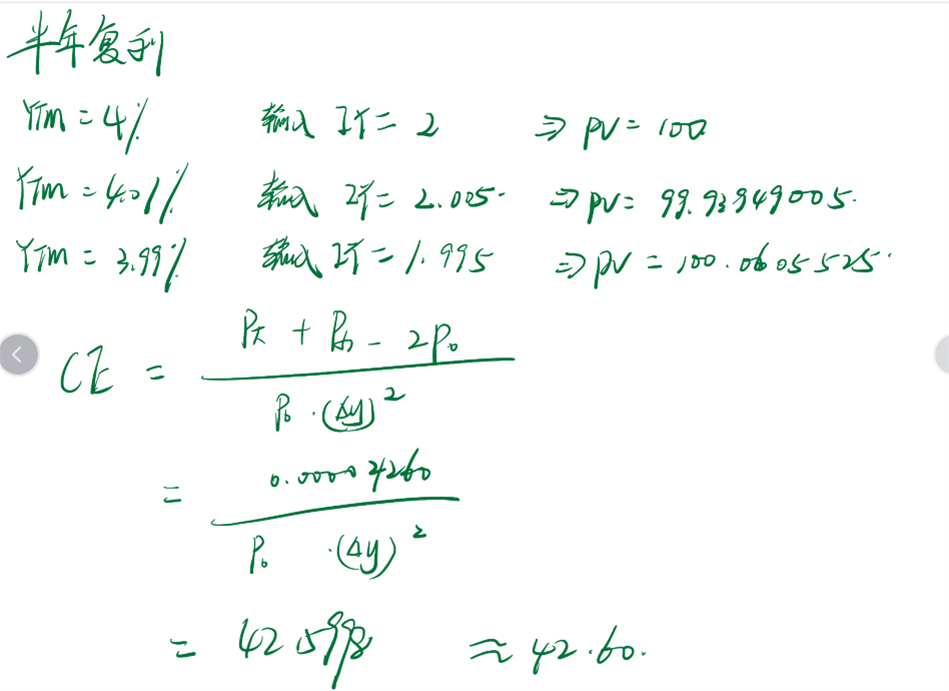 半年复利
YTM = 4% 输入 IY = 2 ⇒ PV = 100
YTM = 4.01% 输入 IY = 2.005 ⇒ PV = 99.93949005.
YTM = 3.99% 输入 IY = 1.995 ⇒ PV = 100.0605525.
P₊ + P₋ - 2P₀
CE = ————
P₀ · (Δy)²
0.00004260
= ————
P₀ · (Δy)²
= 42.598 ≈ 42.60.